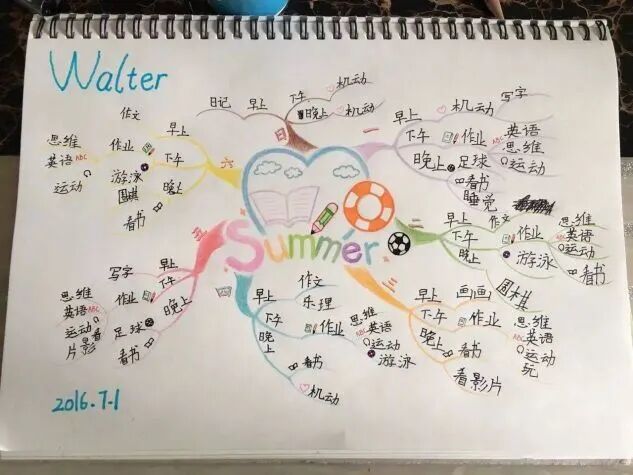 Walter
日
日记
早上
下午
机动
晚上
机动
一
早上
机动
写字
下午
作业
ABC
英语
思维
运动
晚上
足球
看书
睡觉
二
早上
作文
下午
作业
思维
ABC
英语
运动
晚上
游泳
看书
围棋
三
早上
画画
下午
作业
思维
ABC
英语
运动
玩
晚上
看书
看影片
四
早上
作文
乐理
下午
作业
思维
ABC
英语
运动
游泳
晚上
看书
机动
五
早上
写字
下午
作业
思维
英语
ABC
运动
看影片
晚上
足球
看书
六
早上
作文
下午
作业
思维
英语
ABC
运动
晚上
游泳
围棋
看书
Summer
2016.7.1